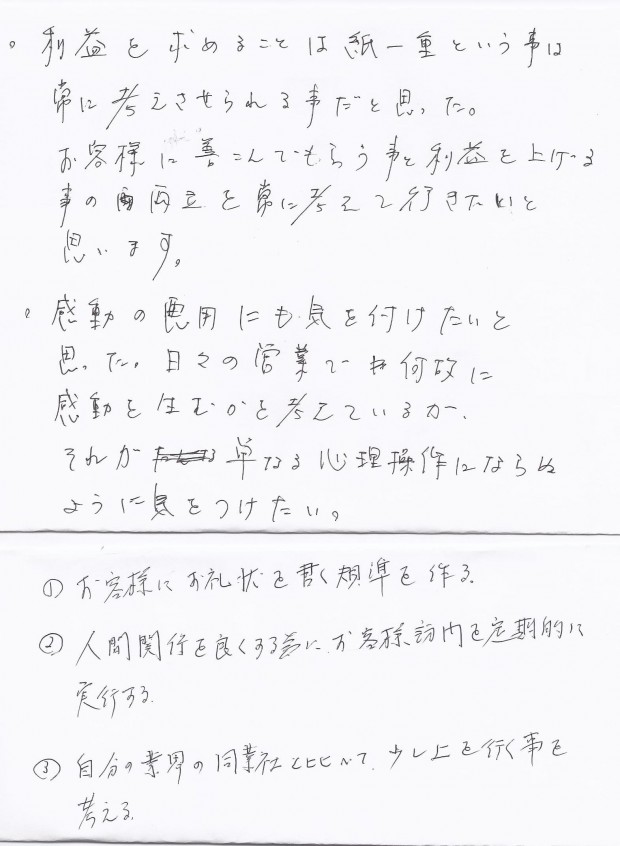 。利益を求めることは紙一重という事は
常に考えさせられる事だと思った。
お客様に喜こんでもらう事と利益を上げる
事の両立を常に考えて行きたいと
思います。
。感動の悪用にも気を付けたいと
思った。日々の営業でも何故に
感動を生むかを考えているが、
それが単なる心理操作にならぬ
ように気をつけたい。
① お客様にお礼状を書く規準を作る。
② 人間関行を良くする為に、お客様訪内を定期的に
実行する。
③ 自分の業界の同業社と比べて、少し上を行く事を
考える。